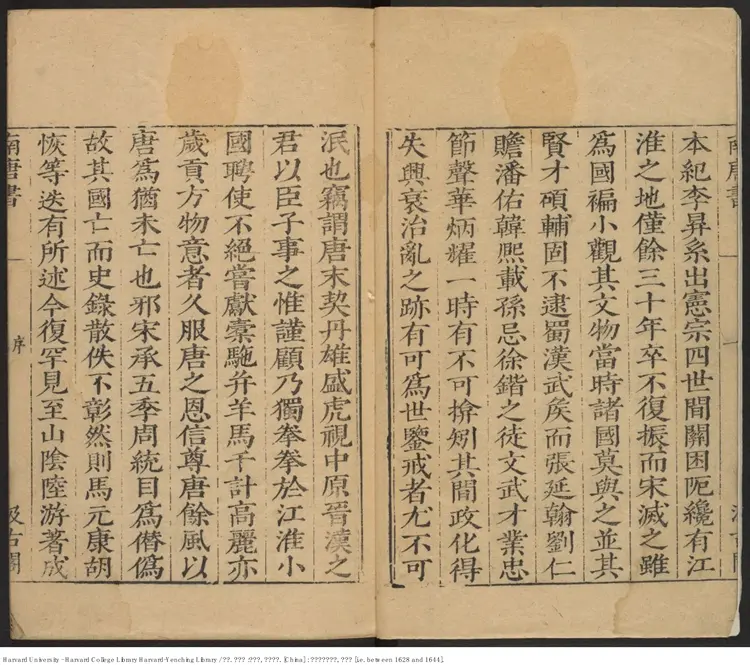 本紀李昪系出憲宗四世間關困阨纔有江
淮之地僅餘三十年卒不復振而宋滅之雖
爲國褊小觀其文物當時諸國莫與之並其
賢才碩輔固不逮蜀漢武矦而張延翰劉仁
贍潘佑韓熙載孫忌徐鍇之徒文武才業忠
節聲華炳耀一時有不可揜矧其間政化得
失興衰治亂之跡有可爲世鑒戒者尤不可
泯也竊謂唐末契丹雄盛虎視中原晉漢之
君以臣子事之惟謹顧乃獨拳拳於江淮小
國聘使不絕嘗獻橐駞并羊馬千計高麗亦
歲貢方物意者久服唐之恩信尊唐餘風以
唐爲猶未亡也邪宋承五季周統目爲僭僞
故其國亡而史錄散佚不彰然則馬元康胡
恢等迭有所述今復罕見至山陰陸游著成
南唐書
序
汲古閣
Harvard University - Harvard College Library Harvard-Yenching Library / ??. ??? :???, ????. [China] : ???????, ??? [i.e. between 1628 and 1644].